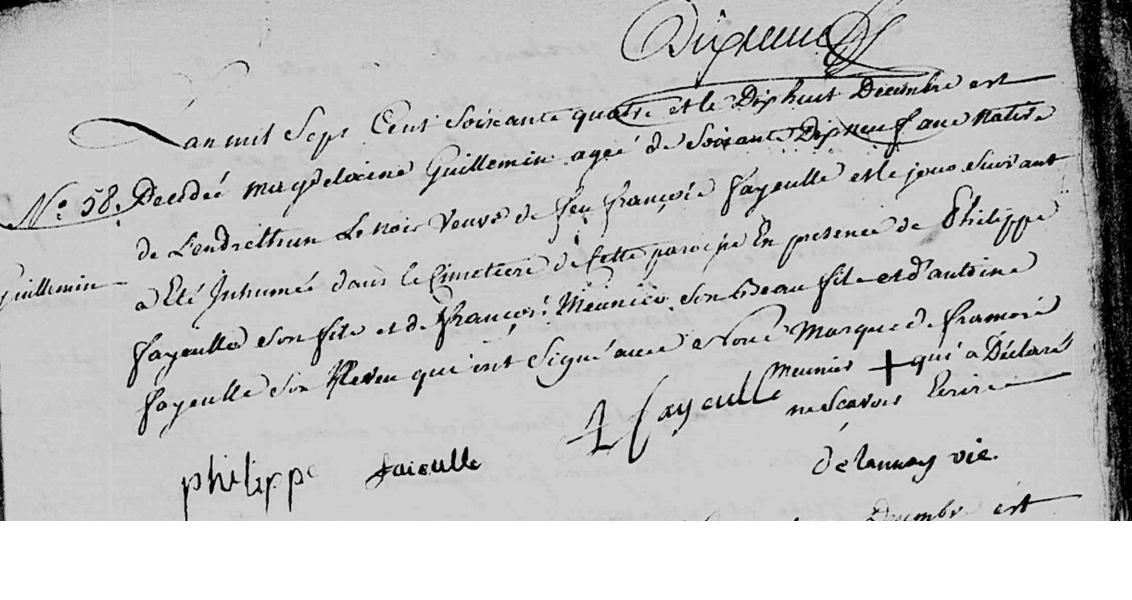 L'an mil Sept Cent Soixante quatre et le Dixhuit Decembre est
N.° 58. Decedeé magdelaine Guillemin ageé de Soixante Dixneuf ans native
de Lendrethun Le noir veuve de feu françois fayeulle et le jour suivant
Guillemin a Eté Inhumée dans le Cimetiere de Cette paroisse En presence de Philippe
fayeulle Son fils et de françois Meunier Son Beau fils et d'antoine
fayeulle Son Neveu qui ont Signé avec Nous Marque de françois
Meunier + qui a Déclaré
A fayeulle ne Scavoir Ecrire
philippe faieulle
délannoy vic.
Decembre est